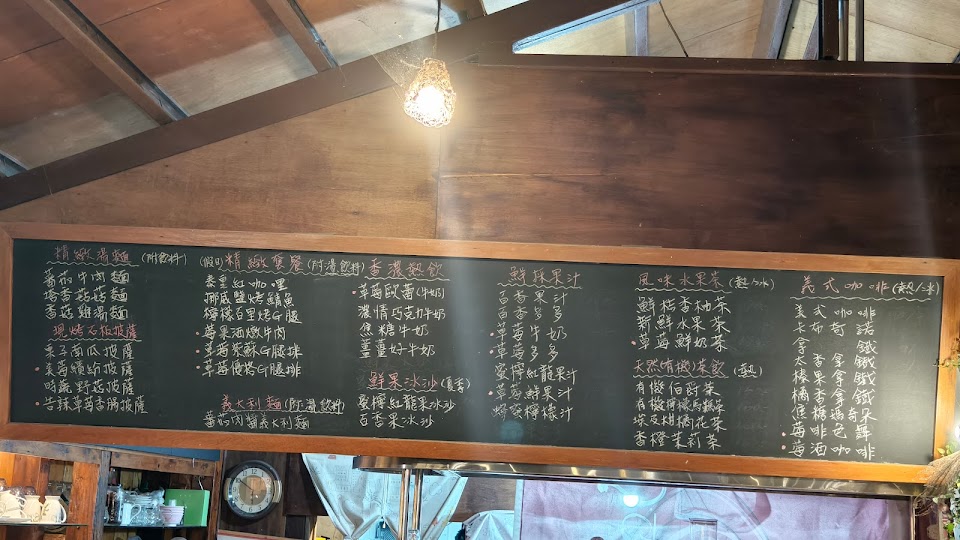 精緻湯麵 (附飲料)
番茄牛肉麵
塔香菇菇麵
香菇雞湯麵
現烤石板披薩
栗子南瓜披薩
• 莓繽紛披薩
時蔬野菇披薩
• 苦辣草莓香腸披薩
(假日)精緻套餐(附湯飲料)
泰皇紅咖哩
挪威鹽烤鯖魚
檸檬百里烤G腿
• 莓果酒燉牛肉
• 草莓紫蘇G腿排
• 草莓慢烤G腿排
義大利麵(附湯飲料)
蕃茄肉醬義大利麵
香濃熱飲
• 草莓歐蕾(牛奶)
濃情巧克力牛奶
焦糖牛奶
薑薑好牛奶
鮮果冰沙(夏季)
蜜檸紅龍果冰沙
百香果冰沙
鮮採果汁
百香果汁
百香多多
• 草莓牛奶
• 草莓多多
蜜檸紅龍果汁
• 草莓鮮果汁
蜂蜜檸檬汁
風味水果茶(熱/冰)
鮮桔香柚茶
新鮮水果茶
• 草莓鮮奶茶
天然有機茶飲(熱)
有機伯爵茶
有機檸檬馬鞭草
玫瑰花茶
香橙茉莉茶
義式咖啡(熱/冰)
美式咖啡
卡布奇諾
拿鐵
太香拿鐵
榛果拿鐵
橘香拿鐵
焦糖瑪奇朵
• 莓啡色舞
• 莓酒咖啡